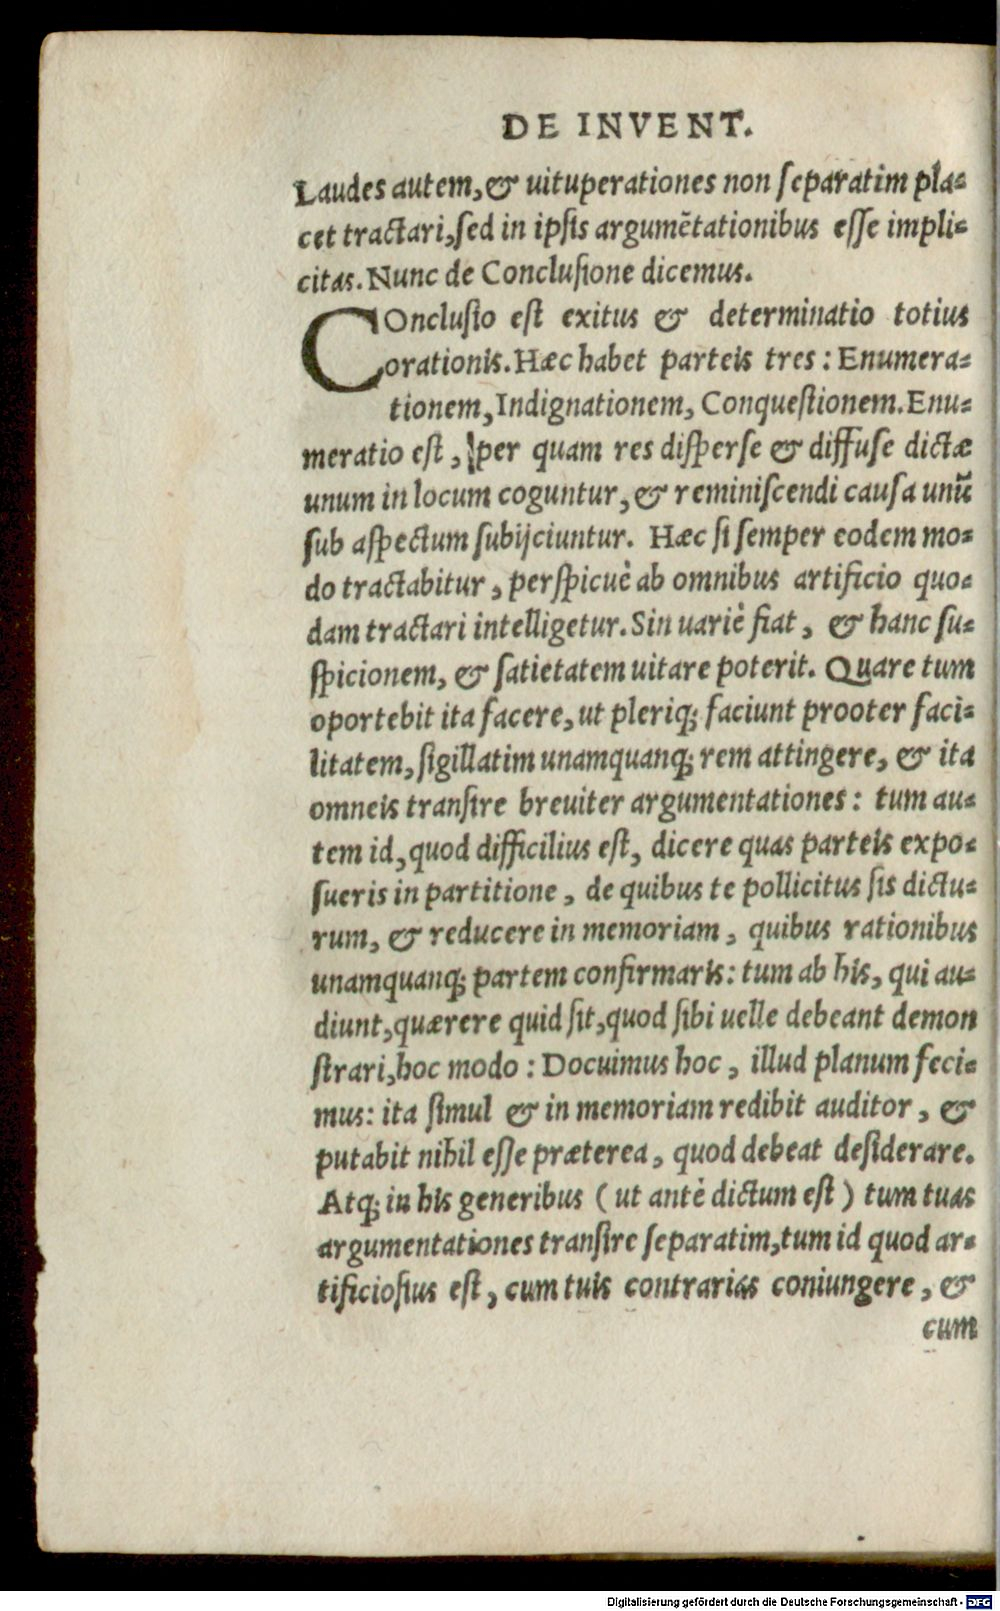 DE INVENT.
Laudes autem, & uituperationes non separatim pla-
cet tractari, sed in ipsis argumētationibus esse impli-
citas. Nunc de Conclusione dicemus.
COnclusio est exitus & determinatio totius
orationis. Hæc habet parteis tres: Enumera-
tionem, Indignationem, Conquestionem. Enu-
meratio est, per quam res disperse & diffuse dictæ
unum in locum coguntur, & reminiscendi causa unū
sub aspectum subijciuntur. Hæc si semper eodem mo-
do tractabitur, perspicuè ab omnibus artificio quo-
dam tractari intelligetur. Sin uariè fiat, & hanc su-
spicionem, & satietatem uitare poterit. Quare tum
oportebit ita facere, ut pleriq; faciunt prooter faci-
litatem, sigillatim unamquanq; rem attingere, & ita
omneis transire breuiter argumentationes: tum au-
tem id, quod difficilius est, dicere quas parteis expo-
sueris in partitione, de quibus te pollicitus sis dictu-
rum, & reducere in memoriam, quibus rationibus
unamquanq; partem confirmaris: tum ab his, qui au-
diunt, quærere quid sit, quod sibi uelle debeant demon
strari, hoc modo: Docuimus hoc, illud planum feci-
mus: ita simul & in memoriam redibit auditor, &
putabit nihil esse præterea, quod debeat desiderare.
Atq; in his generibus (ut antè dictum est) tum tuas
argumentationes transire separatim, tum id quod ar-
tificiosius est, cum tuis contrarias coniungere, &
cum
Digitalisierung gefördert durch die Deutsche Forschungsgemeinschaft - DFG